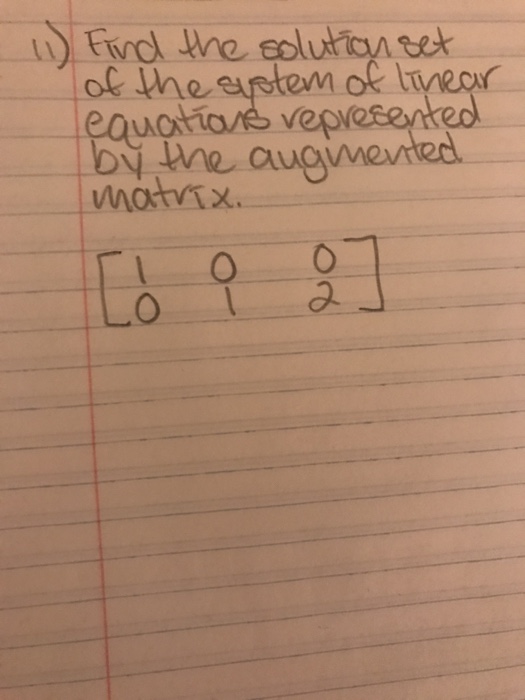 11) Find the solution set
of the system of linear
equations represented
by the augmented
matrix.
[1 0 0]
[0 1 2]